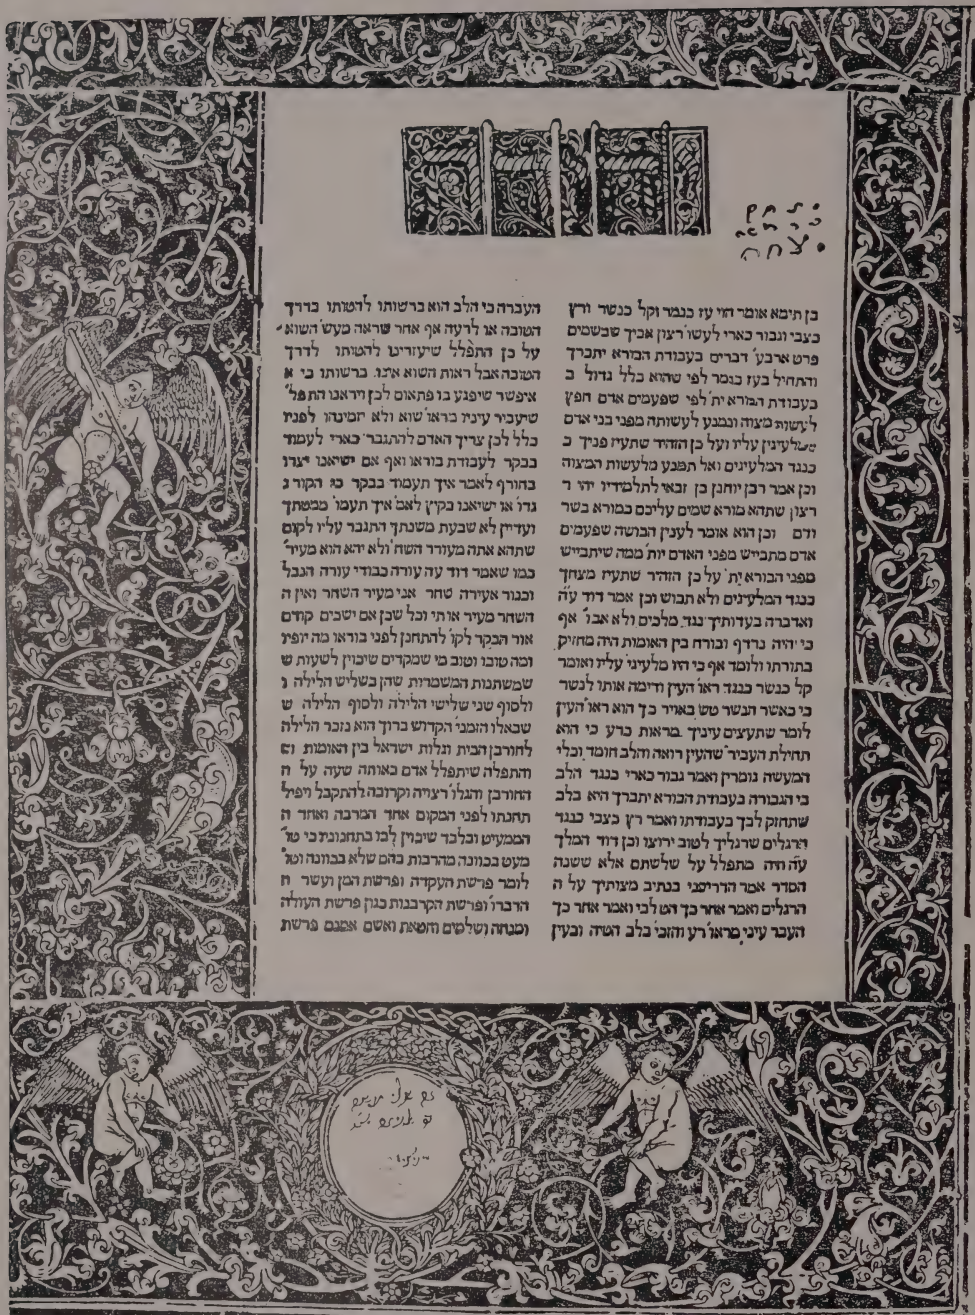 יהודה
בן תימא אומר הוי עז כנמר וקל כנשר ורץ
כצבי וגבור כארי לעשו׳ רצון אביך שבשמים
פרט ארבע׳ דברים בעבודת הבורא יתברך
והתחיל בעז כנמר לפי שהוא כלל גדול ב
בעבודת הבורא ית׳ לפי שפעמים אדם חפץ
לעשות מצוה ונמנע לעשותה מפני בני אדם
שמלעיגין עליו ועל כן הזהיר שתעיז פניך כ
כנגד המלעיגים ואל תמנע מלעשות המצוה
וכן אמר רבן יוחנן בן זכאי לתלמידיו יהי ר
רצון שתהא מורא שמים עליכם כמורא בשר
ודם וכן הוא אומר לענין הבושה שפעמים
אדם מתבייש מפני האדם יות׳ ממה שיתבייש
מפני הבורא ית׳ על כן הזהיר שתעיז מצחך
כנגד המלעיגים ולא תבוש וכן אמר דוד ע״ה
ואדברה בעדותיך נגד מלכים ולא אבו׳ אף
כי היה נרדף ובורח בין האומות היה מחזיק
בתורתו ולומד אף כי היו מלעיגי׳ עליו ואומר
קל כנשר כנגד ראו׳ העין ודימה אותו לנשר
כי כאשר הנשר טש באויר כך הוא ראו׳ העין
לומר שתעצים עיניך מראות ברע כי הוא
תחילת העביר׳ שהעין רואה והלב חומד וכלי
המעשה גומרין ואמר גבור כארי כנגד הלב
כי הגבורה בעבודת הבורא יתברך היא בלב
שתחזק לבך בעבודתו ואמר רץ כצבי כנגד
הרגלים שרגליך לטוב ירוצו וכן דוד המלך
ע״ה היה מתפלל על שלשתם אלא ששנה
הסדר אמר הדריכני בנתיב מצותיך על ה
הרגלים ואמר אחר כך הט לבי ואמר אחר כך
העבר עיני מראו׳ רע והזכי׳ בלב הטיה ובעין
העברה כי הלב הוא ברשותו להטותו בדרך
הטובה או לרעה אף אחר שראה מעש׳ השוא
על כן התפלל שיעזרינו להטותו לדרך
הטובה אבל ראות השוא אינו ברשותו כי א
איפשר שיפגע בו פתאום לכן ויראנו התפל׳
שיעביר עיניו מראו׳ שוא ולא יזמינהו לפניו
כלל לכן צריך האדם להתגבר כארי לעמוד
בבקר לעבודת בוראו ואף אם ישיאנו יצרו
בחורף לאמר איך תעמוד בבקר כי הקור ג
גדו׳ או ישיאנו בקיץ לאמ׳ איך תעמו׳ ממטתך
ועדיין לא שבעת משנתך התגבר עליו לקום
שתהא אתה מעורר השח׳ ולא יהא הוא מעיר׳
כמו שאמר דוד ע״ה עורה כבודי עורה הנבל
וכנור אעירה שחר אני מעיר השחר ואין ה
השחר מעיר אותי וכל שכן אם ישכים קודם
אור הבקר לקו׳ להתחנן לפני בוראו מה יופיו
ומה טובו וטוב מי שמקדים שיכוין לשעות ש
שמשתנות המשמרות שהן בשליש הלילה ו
ולסוף שני שלישי הלילה ולסוף הלילה ש
שבאלו הזמני׳ הקדוש ברוך הוא נזכר הלילה
לחורבן הבית וגלות ישראל בין האומות וה
והתפלה שיתפלל אדם באותה שעה על ה
החורבן והגלו׳ רצויה וקרובה להתקבל ויפיל
תחנתו לפני המקום אחד המרבה ואחד ה
הממעיט ובלבד שיכוין לבו בתחנוניו כי טו׳
מעט בכוונה מהרבות בהם שלא בכוונה וטו׳
לומר פרשת העקדה ופרשת המן ועשר ה
הדברו׳ ופרשת הקרבנות כגון פרשת העולה
ומנחה ושלמים וחטאת ואשם אמנם פרשת